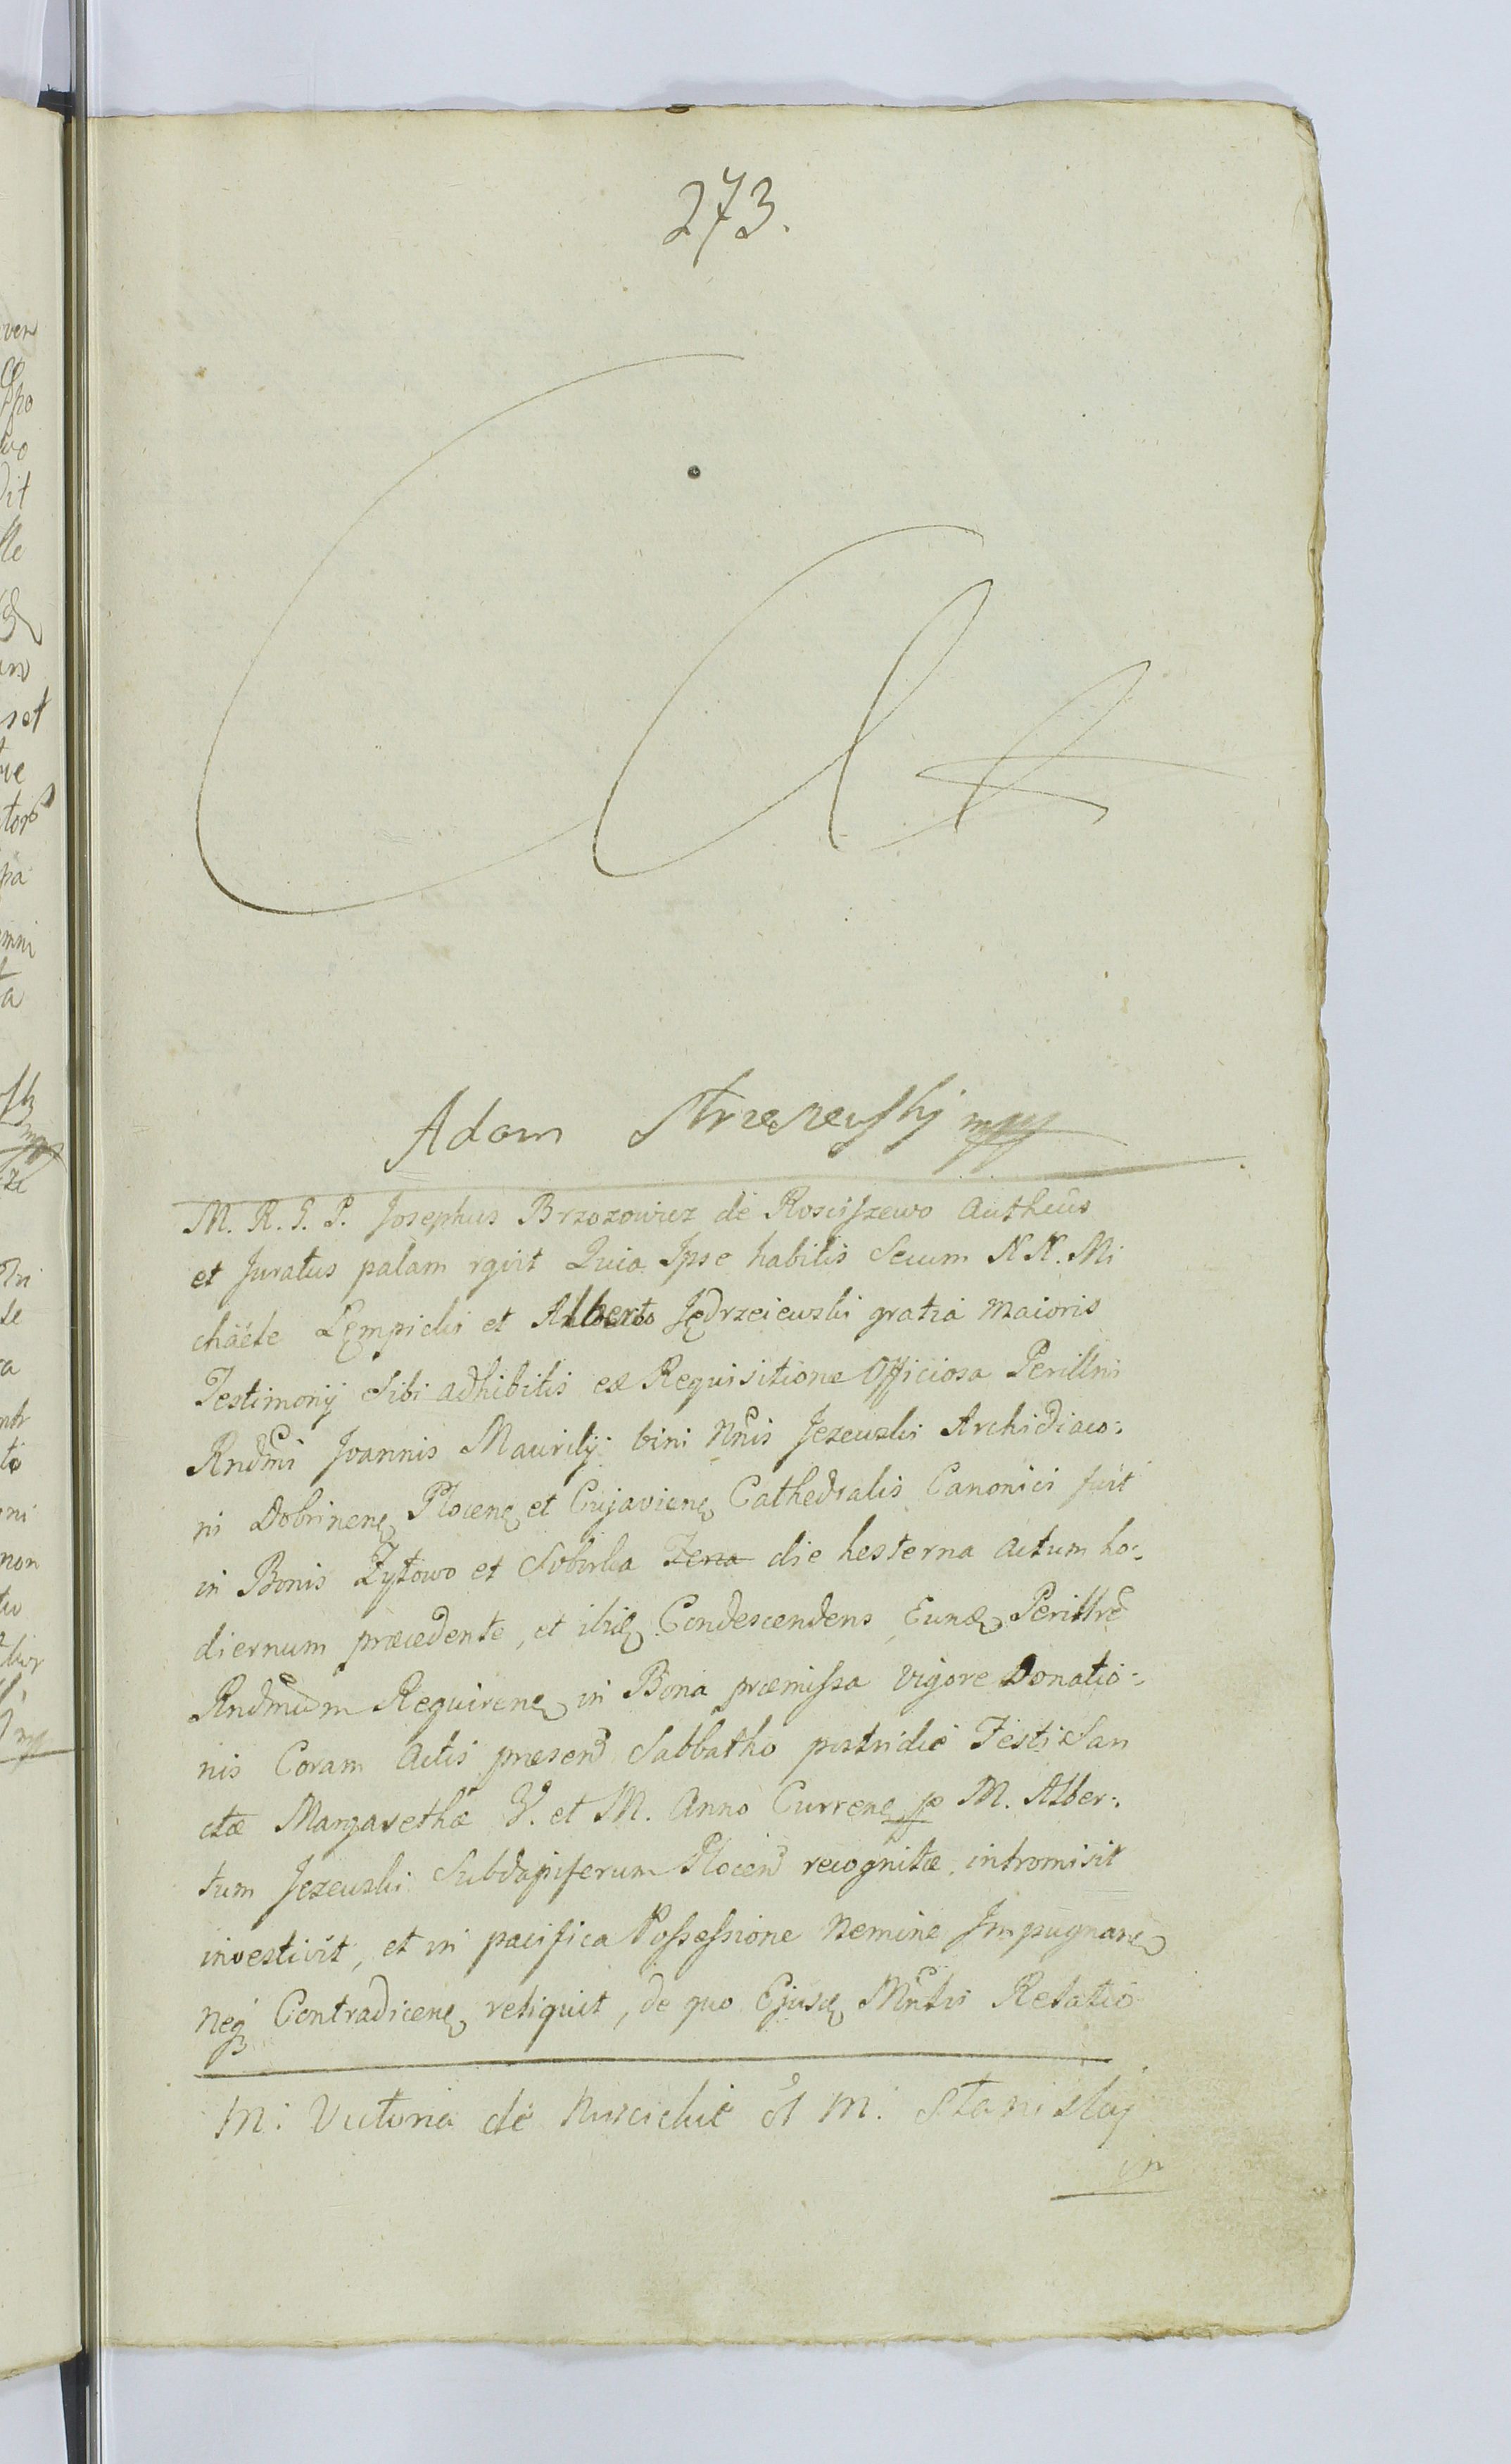 273.
Adam Strzeszewski mpp
M. R. G. P. Josephus Brzozowicz de Rosciszewo Autheus
et Juratus palam rgvit Quia Ipse habitis Secum N N. Mi
chaële Lempicki et Alberto Jędrzeiewski gratia maioris
Testimonij Sibi adhibitis ex Requisitione Officiosa Perillris
Rndmi Joannis Maurilij bini Nnis Jezewski Archidiaco:
ni Dobrinen Plocen et Cujavien Cathedralis Canonici fuit
in Bonis Zytowo et Soborka die hesterna Actum ho:
diernum præcedente, et ibid Condescendens Eund Perillrem
Rndmum Requiren in Bona præmissa vigore Donatio:
nis Coram Actis præsen Sabbatho postridie Festi San
ctæ Margarethæ V. et M. Anno Curren p M. Alber:
tum Jezewski Subdapiferum Plocen recognitæ intromisit
investivit, et in pacifica Possessione Nemine Impugnan
neq Contradicen reliquit, de quo Ejusd Mntri Relatio
M: Victoria de M: Stanislaj